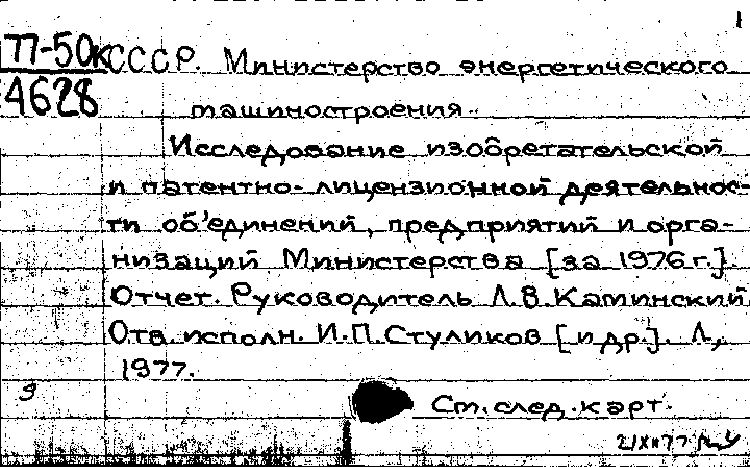 1
77-50к СССР. Министерство энергетического
4628 машиностроения.
Исследование изобретательской
и патентно-лицензионной деятельнос-
ти об'единений, предприятий и орга-
низаций Министерства [за 1976 г.].
Отчет. Руководитель Л.В. Каминский
Отв. исполн. И.П. Стуликов [и др.]. Л.,
1977.
9
См. след. карт.